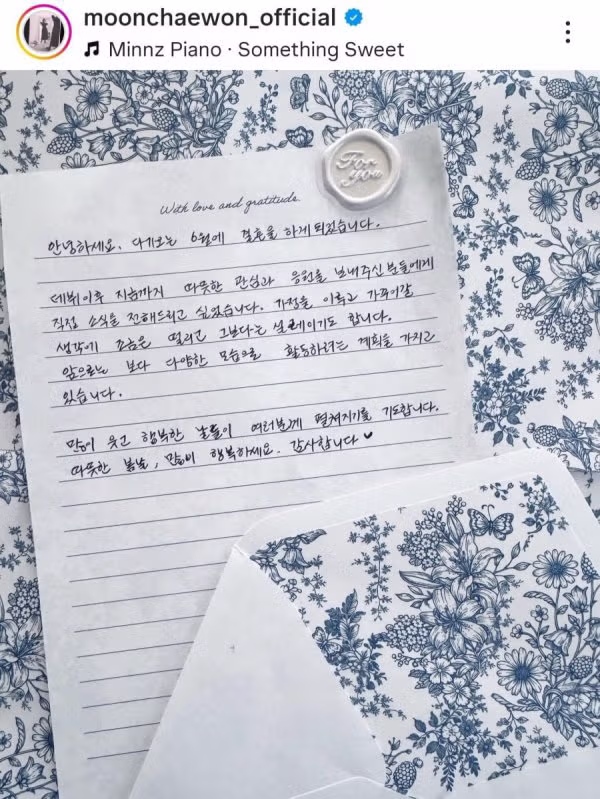 moonchaewon_official
Minnz Piano · Something Sweet
For
you
With love and gratitude
안녕하세요. 다가오는 6월에 결혼을 하게 되었습니다.
데뷔이후 지금까지 따뜻한 관심과 응원을 보내주신 분들에게
직접 소식을 전해드리고 싶었습니다. 가정을 이루고 가꾸어갈
생각에 조금은 떨리고 그보다는 설레이기도 합니다.
앞으로는 보다 다양한 모습으로 활동하려는 계획을 가지고
있습니다.
많이 웃고 행복한 날들이 여러분께 펼쳐지기를 기도합니다.
따뜻한 봄날, 많이 행복하세요. 감사합니다 ♥